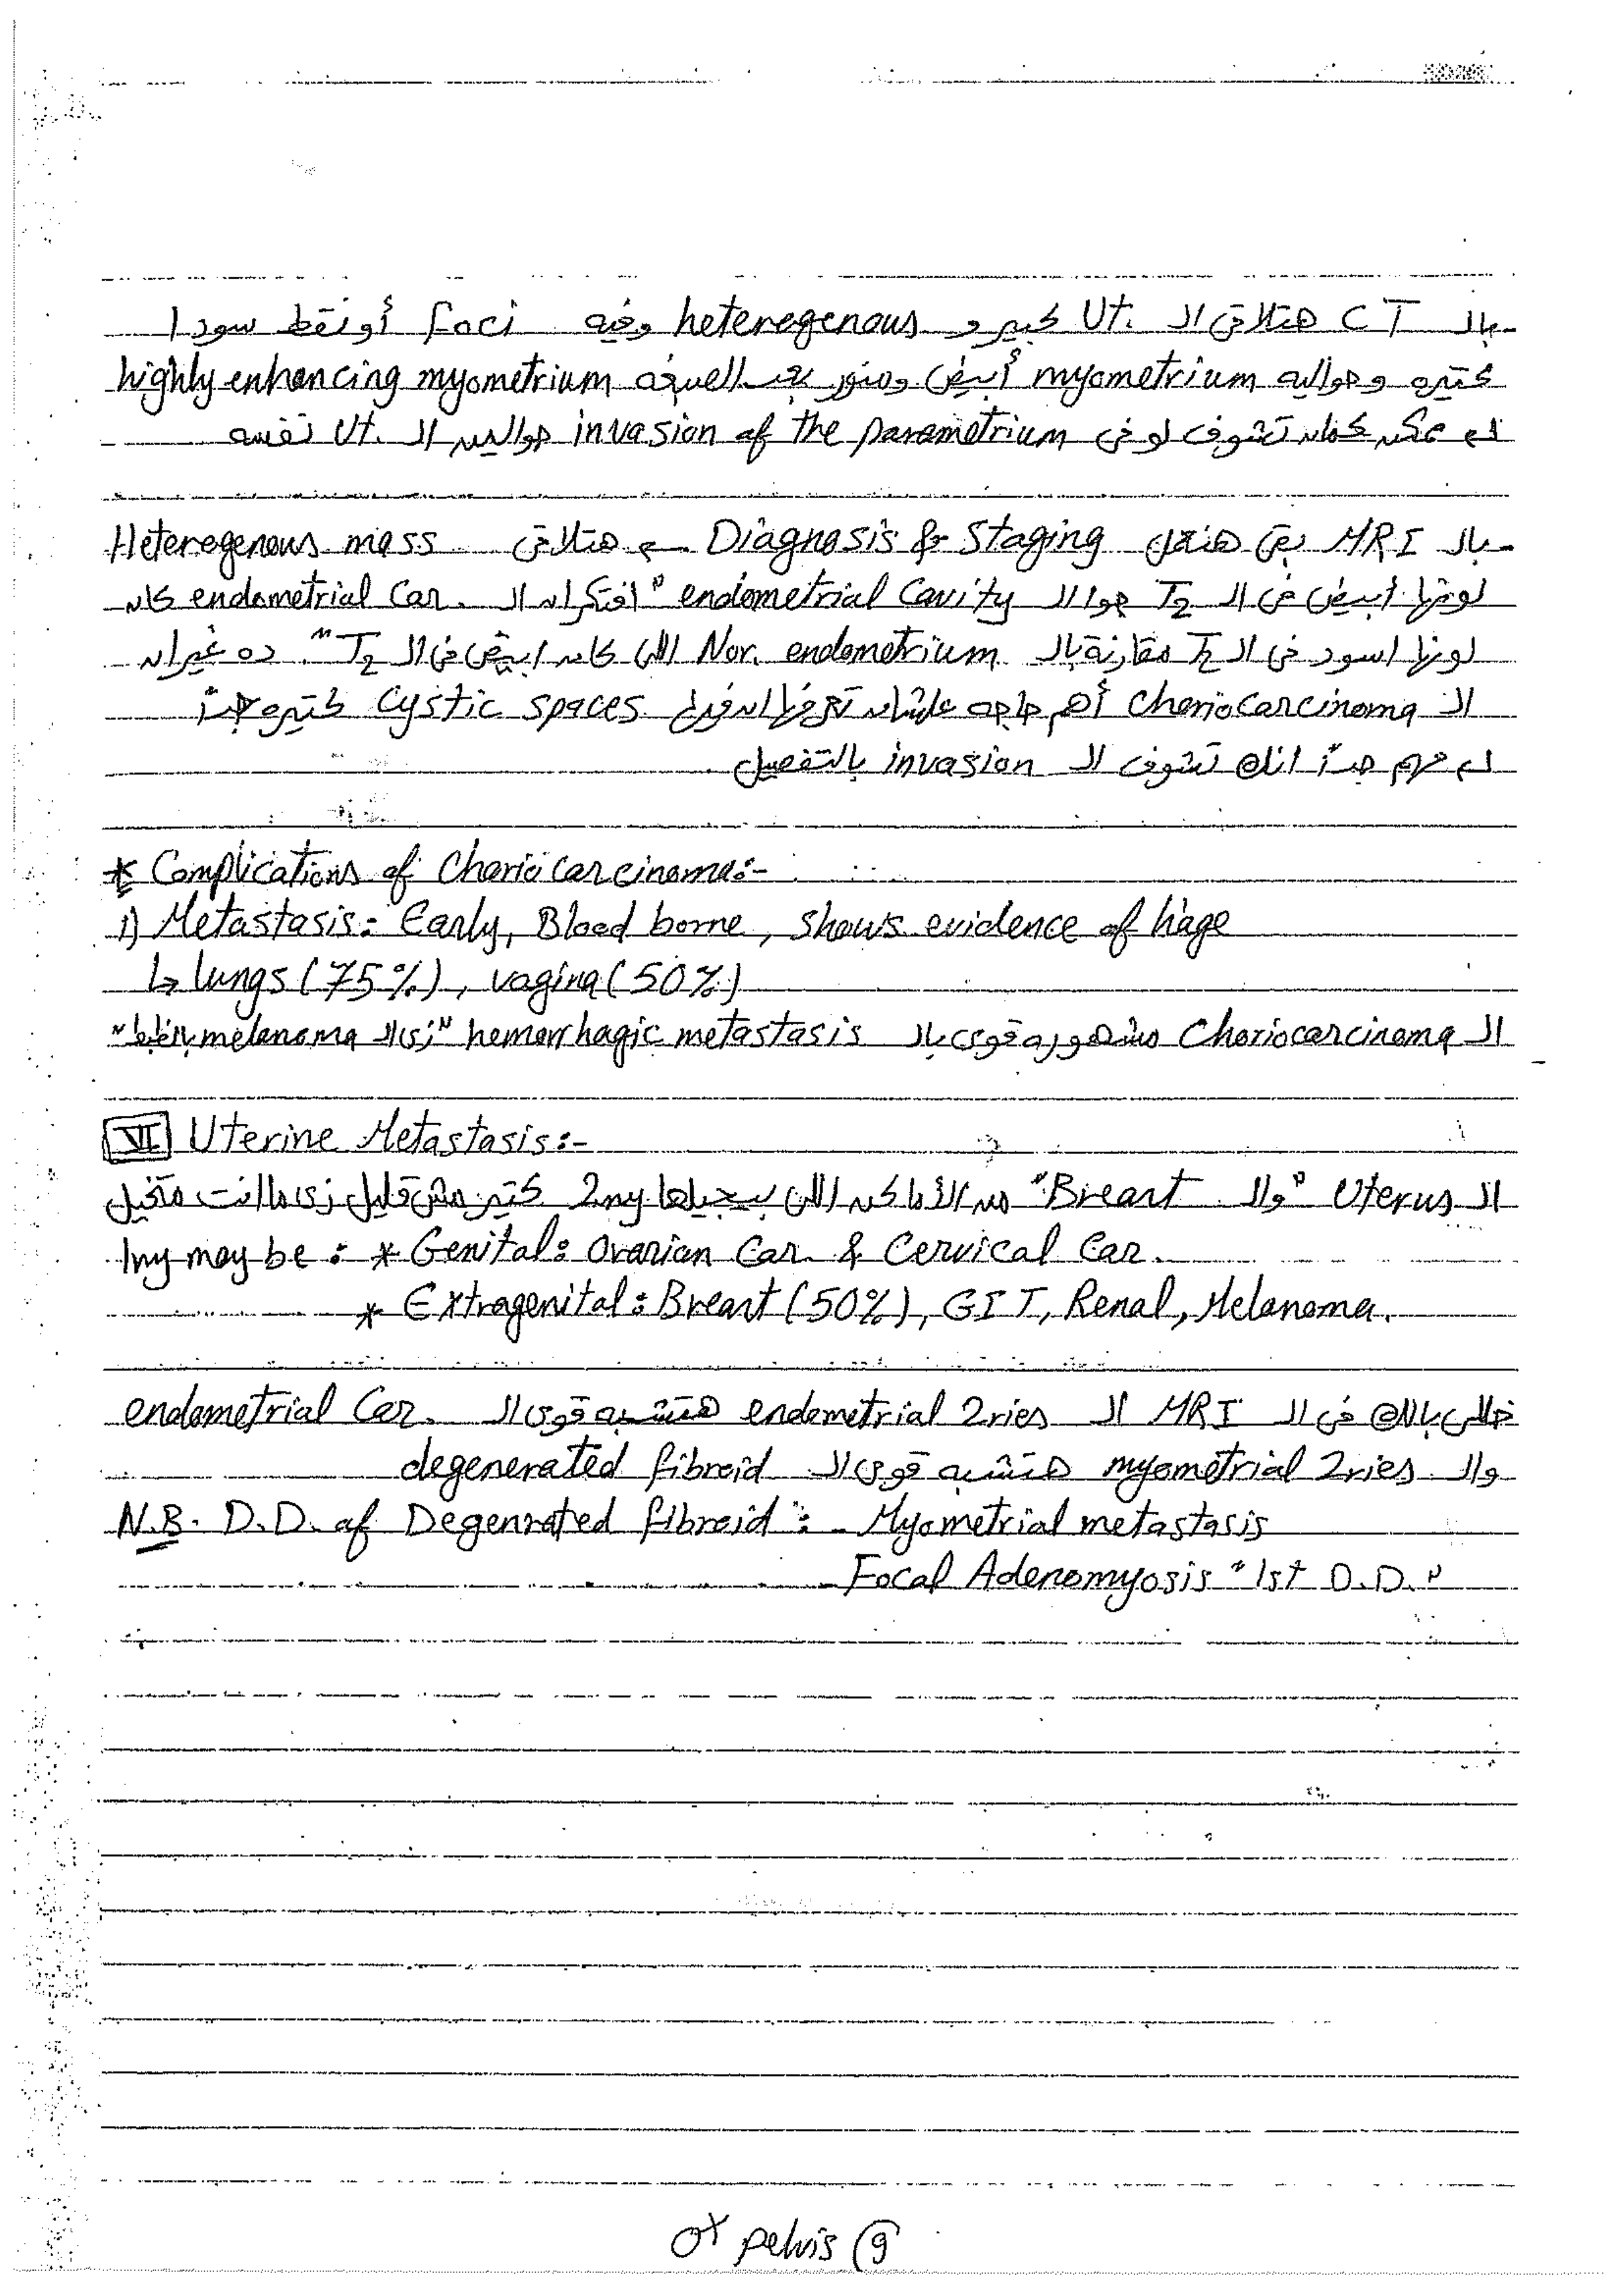 بالـ CT هتلاقى الـ Ut. كبير و heteregenous وفيه foci أو نقط سودا
كتيره وحواليه myometrium أبيض ومنور بعد الصبغه highly enhancing myometrium
لم ممكن كمان تشوف لو فى invasion of the parametrium حوالين الـ Ut. نفسه
بالـ MRI بقى هنعمل Diagnosis & Staging → هتلاقى Heteregenous mass
لونها أبيض فى الـ T2 جوا الـ endometrial Cavity "افتكر ان الـ endometrial Car. كان
لونها اسود فى الـ T2 مقارنة بالـ Nor. endometrium اللى كان ابيض فى الـ T2". ده غير ان
الـ Choriocarcinoma أهم حاجه علشان تعرفها ان فيها Cystic spaces كتيره جداً
لم مهم جداً انك تشوف الـ invasion بالتفصيل
* Complications of Choriocarcinoma:-
1) Metastasis: Early, Blood borne, shows evidence of h'age
↳ lungs (75%), vagina (50%)
الـ Choriocarcinoma مشهوره قوى بالـ hemorrhagic metastasis "زى الـ melanoma بالظبط"
VI Uterine Metastasis:-
الـ Uterus "والـ Breast" من الأماكن اللى بيجيلها 2ry كتير مش قليل زى ما انت متخيل
1ry may be: * Genital: Ovarian Car. & Cervical Car.
* Extragenital: Breast (50%), GIT, Renal, Melanoma.
خلى بالك فى الـ MRI الـ endometrial 2ries هتشبه قوى الـ endometrial Car.
والـ myometrial 2ries هتشبه قوى الـ degenerated fibroid
N.B. D.D. of Degenrated fibroid: - Myometrial metastasis
- Focal Adenomyosis "1st D.D."
pelvis (9